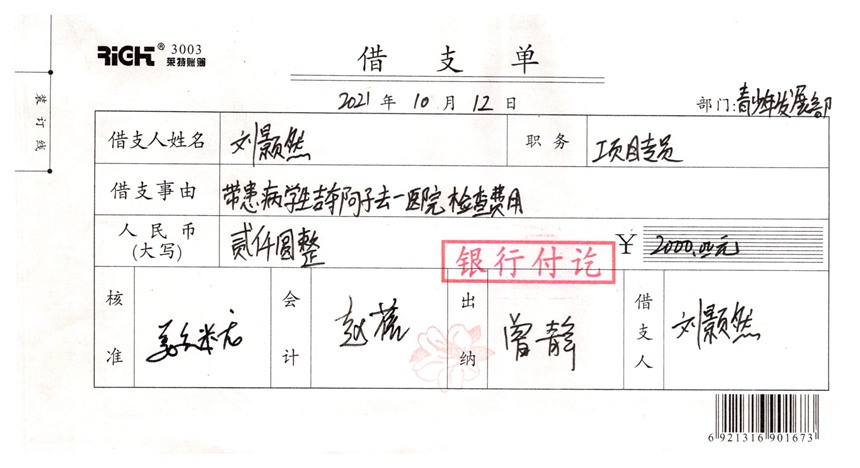 RIGHT® 3003
莱特账簿
借支单
2021年10月12日
部门:青少年发展部
装订线
借支人姓名 刘颢然 职务 项目专员
借支事由 带患病学生吉夺阿子去一医院检查费用
人民币(大写) 贰仟圆整 ¥ 2000.00元
银行付讫
核准 会计 赵蓉 出纳 曾静 借支人 刘颢然
6 921316 901673